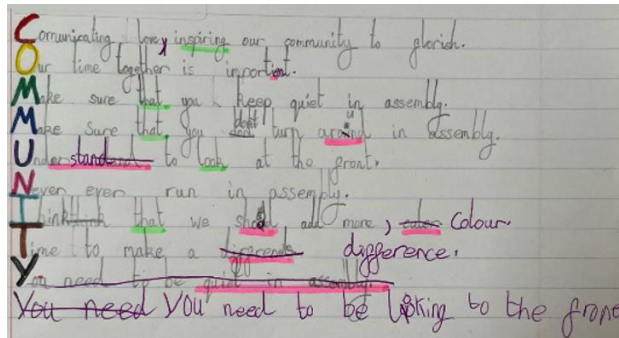 Comunicating lovey inspiring our community to glorish.
Our time together is inportient.
Make sure that you keep quiet in assembly.
Make Sure that you dont turn around in assembly.
Understand to look at the front.
Never ever run in assembly.
Think that we should add more, Colour.
Time to make a difference.
You need to be quiet in assembly.
You need You need to be looking to the frone